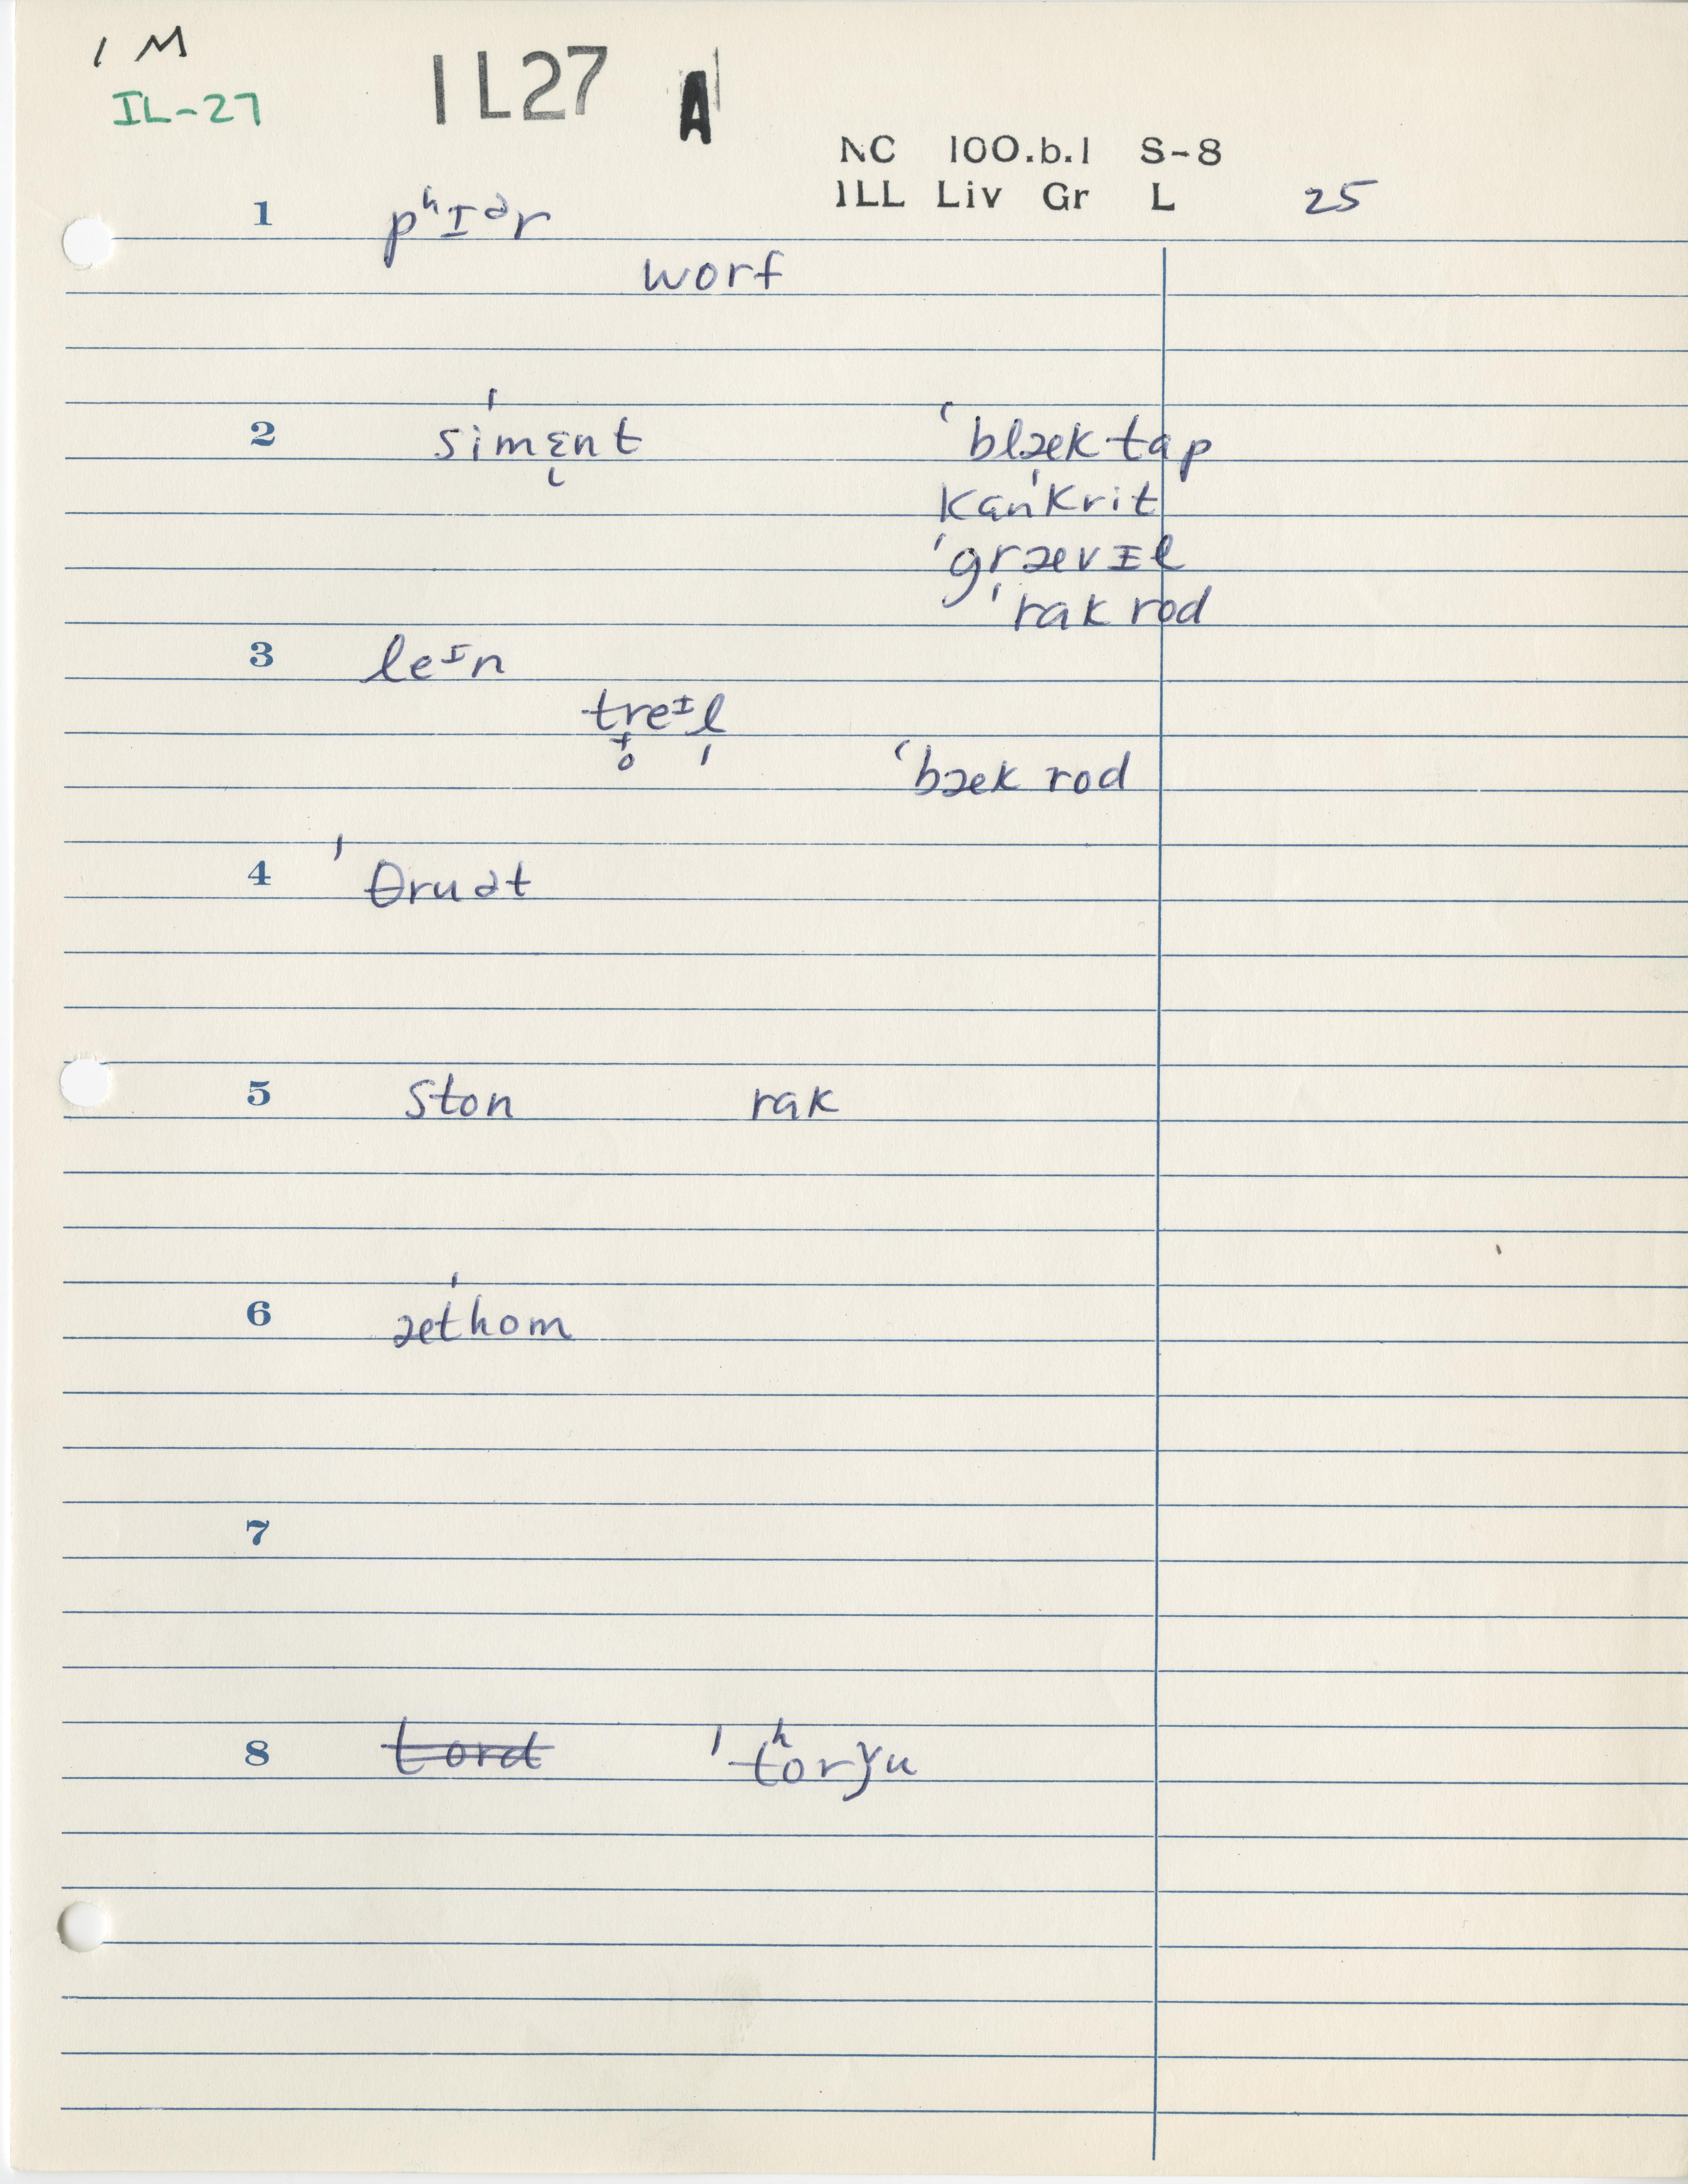 1 M
IL-27 1L27 A
NC 100.b.1 S-8
ILL Liv Gr L 25
1 pʰɪᵊr
worf
2 siˈmɛ̨nt ˈblæktap
kanˈkrit
ˈgrævɪl
ˈrak rod
3 leᶦn
treᶦl
ˈbæk rod
4 ˈθruət
5 ston rak
6 ætˈhom
7
8 tord ˈtʰorɣu